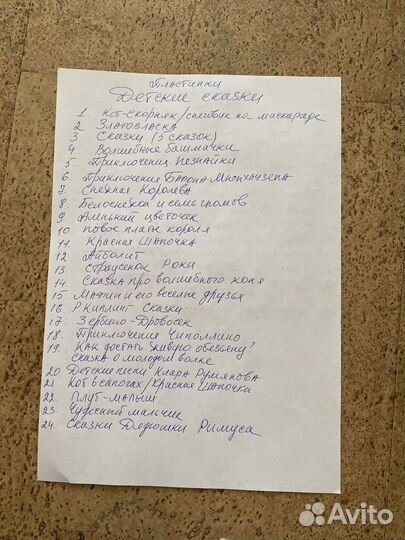 Пластинки
Детские сказки
1 Кот-скорняк/слоненок на маскараде
2 Златовласка
3 Сказки (5 сказок)
4 Волшебные башмачки
5. Приключения Незнайки
6 Приключения Барона Мюнхаузена
7. Снежная Королева
8. Белоснежка и семь гномов
9 Аленький цветочек
10. Новое платье короля
11. Красная Шапочка
12 Айболит
13. Страусенок Роки
14. Сказка про волшебного коня
15. Мафин и его веселые друзья
16. Р Киплинг Сказки
17. Зербино-Дровосек
18. Приключение Чиполлино
19. Как достать живую обезьяну?
Сказка о молодом волке
20 Детские песни Клара Румянова
21 Кот в сапогах/Красная Шапочка
22. Плут-малыш
23. Чудесный мальчик
24. Сказки Дядюшки Римуса
Avito